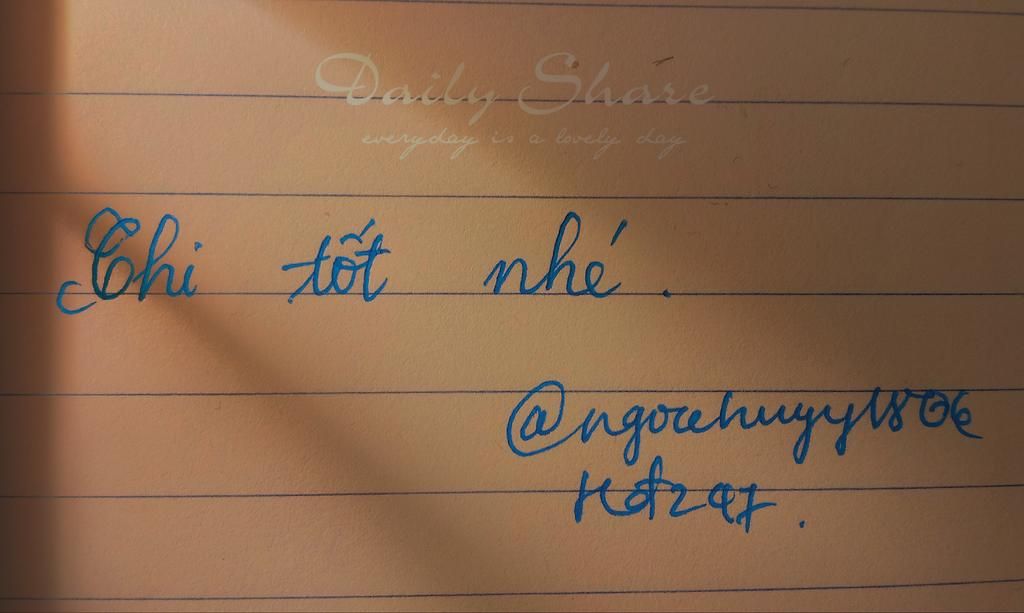 Daily Share
everyday is a lovely day
Thi tốt nhé.
@ngocchuyy1806